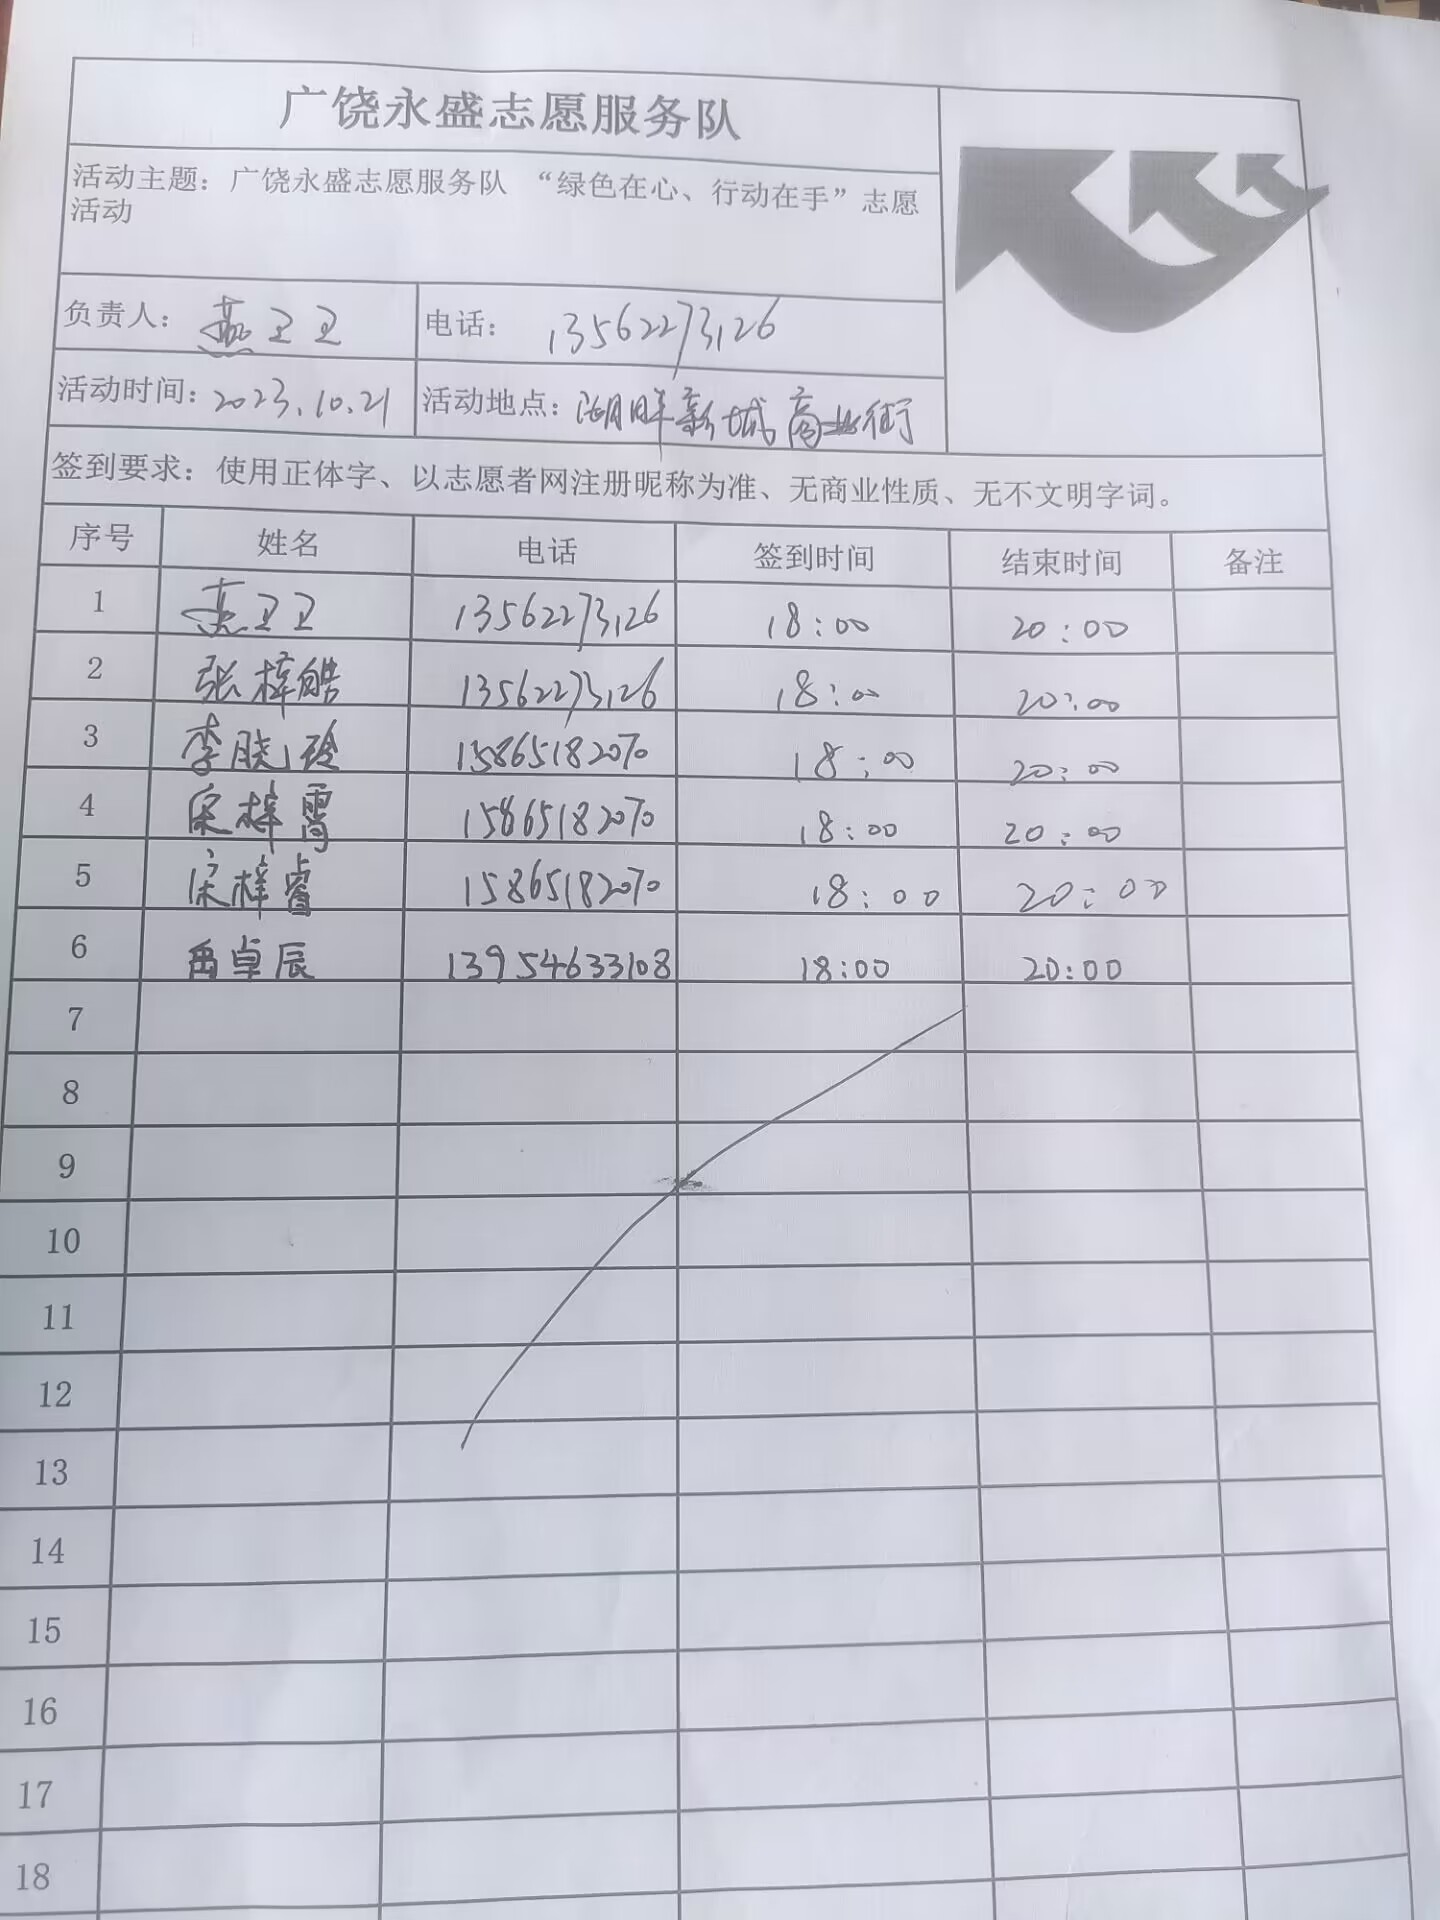 广饶永盛志愿服务队
活动主题：广饶永盛志愿服务队 “绿色在心、行动在手”志愿
活动
负责人：燕卫卫 电话：13562273126
活动时间：2023.10.21 活动地点：湖畔新城商业街
签到要求：使用正体字、以志愿者网注册昵称为准、无商业性质、无不文明字词。
序号 姓名 电话 签到时间 结束时间 备注
1 燕卫卫 13562273126 18:00 20:00
2 张梓皓 13562273126 18:00 20:00
3 李晓玲 15865182070 18:00 20:00
4 宋梓霄 15865182070 18:00 20:00
5 宋梓睿 15865182070 18:00 20:00
6 禹卓辰 13954633108 18:00 20:00
7
8
9
10
11
12
13
14
15
16
17
18